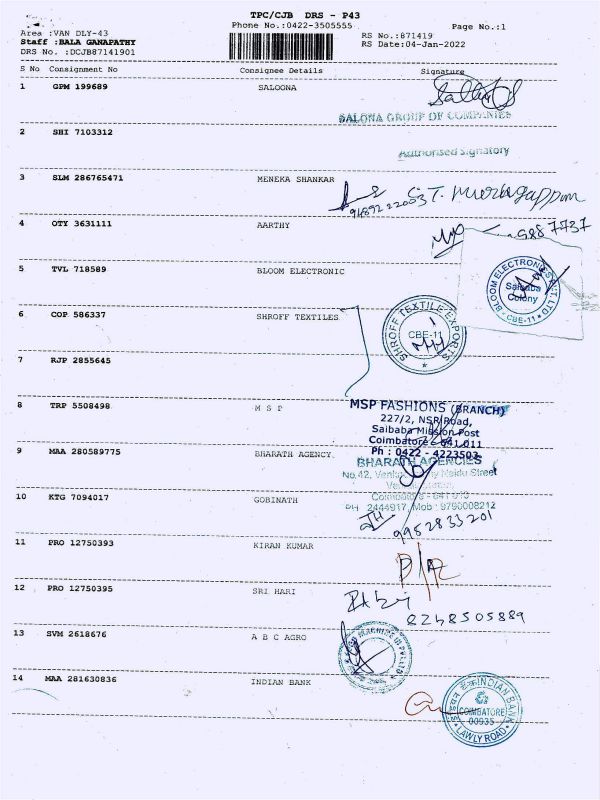 TPC/CJB DRS - P43
Phone No.:0422-3505555
Page No.:1
Area :VAN DLY-43
Staff :BALA GANAPATHY
DRS No. :DCJB87141901
RS No.:871419
RS Date:04-Jan-2022
S No Consignment No Consignee Details Signature
1 GPM 199689 SALOONA
SALONA GROUP OF COMPANIES
2 SHI 7103312
Authorised Signatory
3 SLM 286765471 MENEKA SHANKAR
4 OTY 3631111 AARTHY
5 TVL 718589 BLOOM ELECTRONIC
BLOOM ELECTRONICS PVT. LTD
Saibaba
Colony
CBE-11
6 COP 586337 SHROFF TEXTILES
SHROFF TEXTILE EXPORTS
CBE-11
7 RJP 2855645
8 TRP 5508498 M S P
MSP FASHIONS (BRANCH)
227/2, NSR Road,
Saibaba Mission Post
Coimbatore - 641 011
Ph : 0422 - 4223503
9 MAA 280589775 BHARATH AGENCY
BHARATH AGENCIES
No.42, Naidu Street
Coimbatore - 641
PH 2444917, Mob : 9790008212
10 KTG 7094017 GOBINATH
9952833201
11 PRO 12750393 KIRAN KUMAR
12 PRO 12750395 SRI HARI
8248505889
13 SVM 2618676 A B C AGRO
14 MAA 281630836 INDIAN BANK
INDIAN BANK
COIMBATORE
00935
LAWLY ROAD